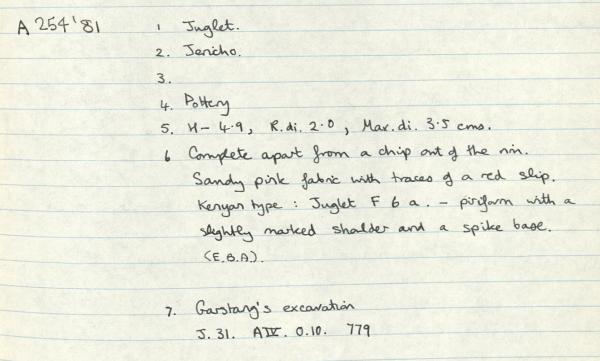 A 254'81
1 Juglet.
2. Jericho.
3.
4. Pottery
5. H - 4.9, R.di. 2.0, Max.di. 3.5 cms.
6 Complete apart from a chip out of the rim.
Sandy pink fabric with traces of a red slip.
Kenyan type : Juglet F 6 a. - piriform with a
slightly marked sholder and a spike base.
(E.B.A).
7. Garstang's excavation
J. 31. AIV. 0.10. 779